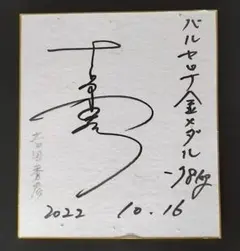 バルセロナ金メダル
-78kg
吉田秀彦
2022 10.16